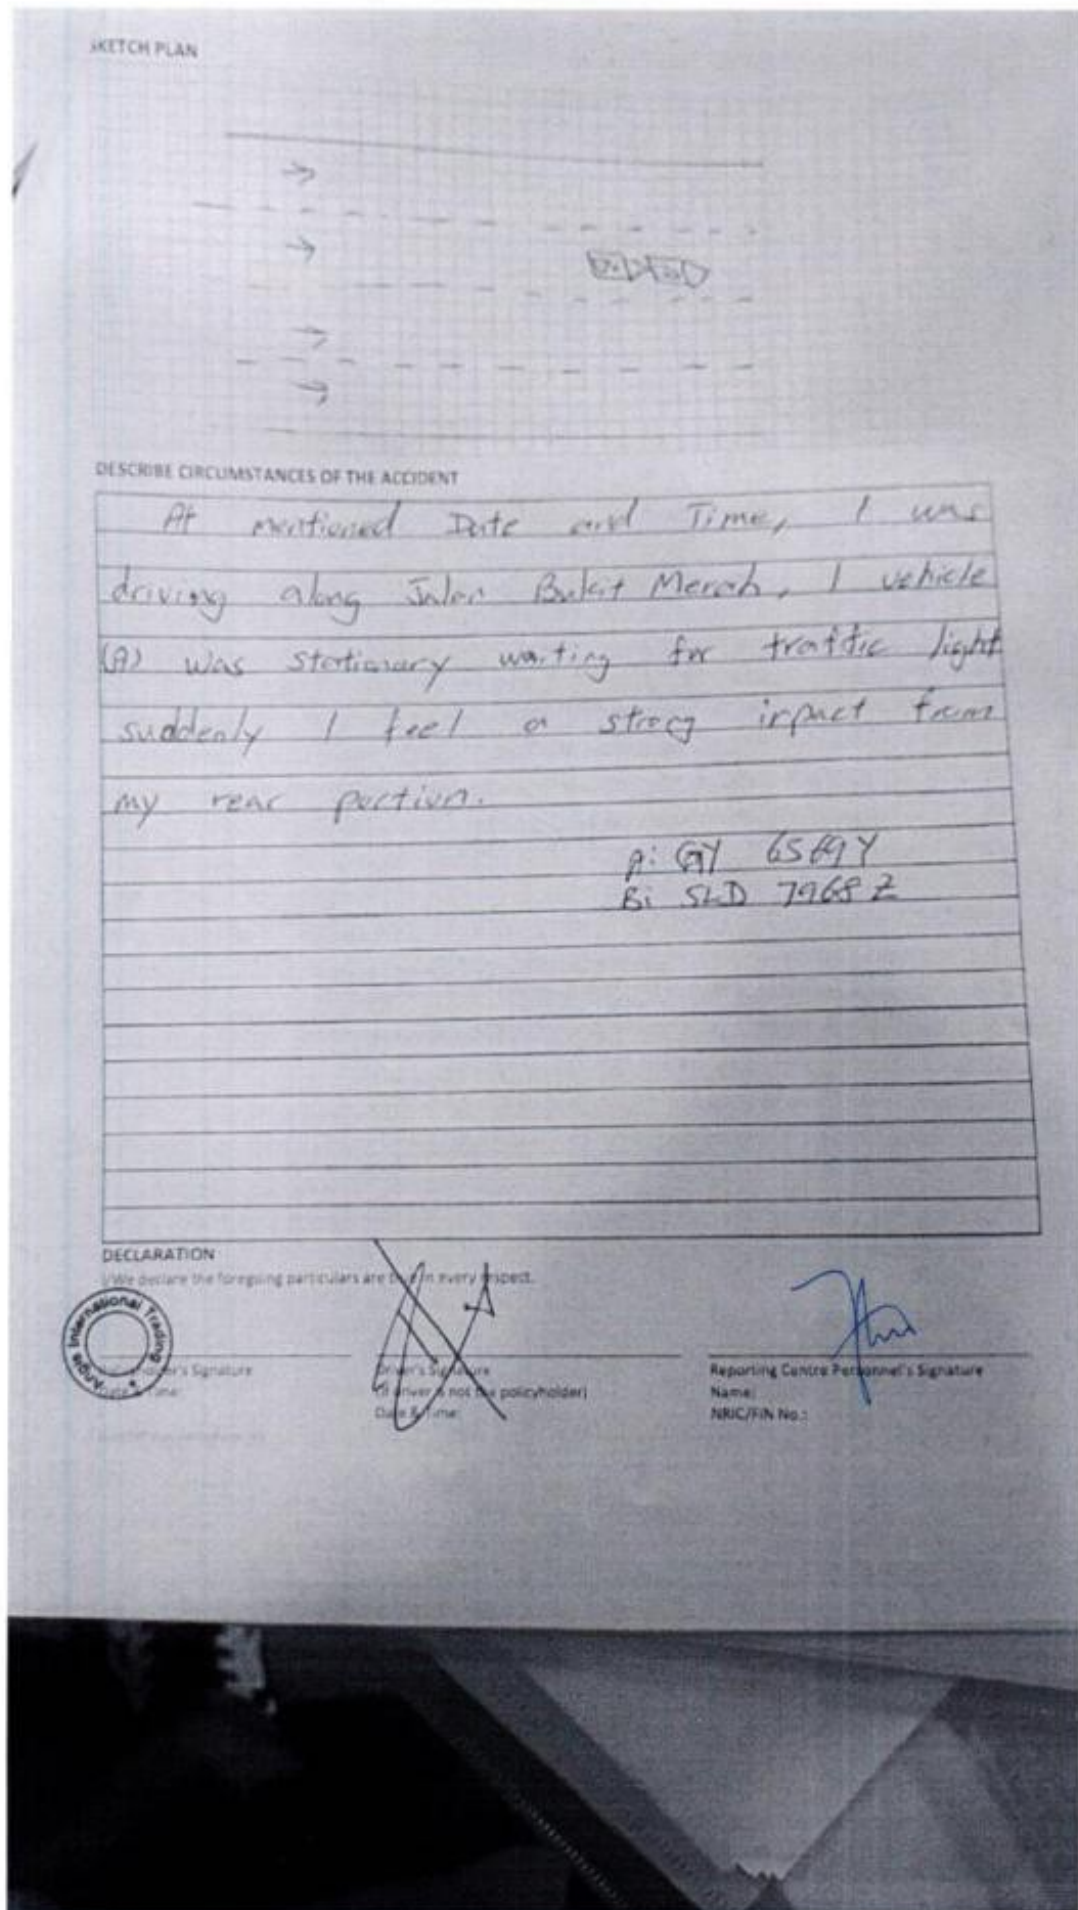 SKETCH PLAN
DESCRIBE CIRCUMSTANCES OF THE ACCIDENT
At mentioned Date and Time, I was
driving along Jalan Bukit Merah, I vehicle
(A) was stationary waiting for traffic light
suddenly I feel a strong impact from
my rear portion.
A: GY 6569Y
B: SLD 7968Z
DECLARATION
I/We declare the foregoing particulars are true in every respect.
Angie International Trading
Policyholder's Signature
Date & Time:
Driver's Signature
(if driver is not the policyholder)
Date & Time:
Reporting Centre Personnel's Signature
Name:
NRIC/FIN No.: